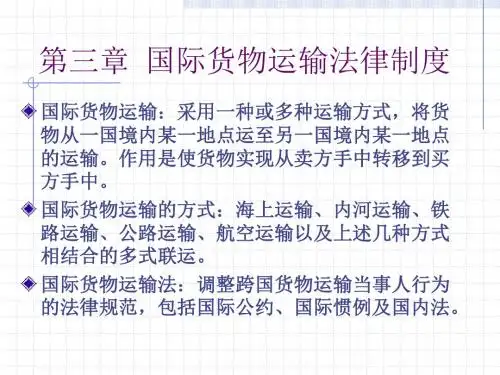 第三章 国际货物运输法律制度
国际货物运输：采用一种或多种运输方式，将货
物从一国境内某一地点运至另一国境内某一地点
的运输。作用是使货物实现从卖方手中转移到买
方手中。
国际货物运输的方式：海上运输、内河运输、铁
路运输、公路运输、航空运输以及上述几种方式
相结合的多式联运。
国际货物运输法：调整跨国货物运输当事人行为
的法律规范，包括国际公约、国际惯例及国内法。